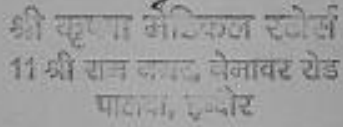 श्री कृष्णा मेडिकल स्टोर्स
11 श्री राम नगर, नेमावर रोड
इन्दोर